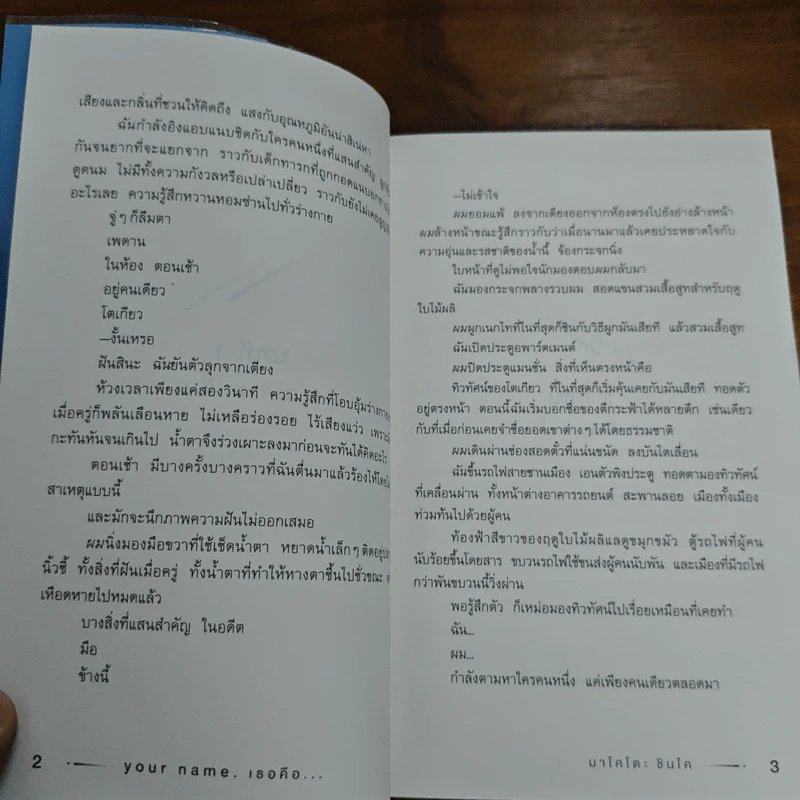 เสียงและกลิ่นที่ชวนให้คิดถึง แสงกับอุณหภูมิอันน่าสิเนหา
ฉันกำลังอิงแอบแนบชิดกับใครคนหนึ่งที่แสนสำคัญ
กันจนยากที่จะแยกจาก ราวกับเด็กทารกที่ถูกกอดแนบอก
ดูดนม ไม่มีทั้งความกังวลหรือเปล่าเปลี่ยว ราวกับยังไม่เคย
อะไรเลย ความรู้สึกหวานหอมซ่านไปทั่วร่างกาย
จู่ๆ ก็ลืมตา
เพดาน
ในห้อง ตอนเช้า
อยู่คนเดียว
โตเกียว
—งั้นเหรอ
ฝันสินะ ฉันยันตัวลุกจากเตียง
ห้วงเวลาเพียงแค่สองวินาที ความรู้สึกที่โอบอุ้มร่างกาย
เมื่อครู่ก็พลันเลือนหาย ไม่เหลือร่องรอย ไร้เสียงแว่ว เพราะ
กะทันหันจนเกินไป น้ำตาจึงร่วงเผาะลงมาก่อนจะทันได้คิดอะไร
ตอนเช้า มีบางครั้งบางคราวที่ฉันตื่นมาแล้วร้องไห้โดย
สาเหตุแบบนี้
และมักจะนึกภาพความฝันไม่ออกเสมอ
ผมนิ่งมองมือขวาที่ใช้เช็ดน้ำตา หยาดน้ำเล็กๆ ติดอยู่
นิ้วชี้ ทั้งสิ่งที่ฝันเมื่อครู่ ทั้งน้ำตาที่ทำให้หางตาชื้นไปชั่วขณะ
เหือดหายไปหมดแล้ว
บางสิ่งที่แสนสำคัญ ในอดีต
มือ
ข้างนี้
2
your name. เธอคือ...
—ไม่เข้าใจ
ผมยอมแพ้ ลงจากเตียงออกจากห้องตรงไปยังอ่างล้างหน้า
ผมล้างหน้าขณะรู้สึกราวกับว่าเมื่อนานมาแล้วเคยประหลาดใจกับ
ความอุ่นและรสชาติของน้ำนี้ จ้องกระจกนิ่ง
ใบหน้าที่ดูไม่พอใจนักมองตอบผมกลับมา
ฉันมองกระจกพลางรวบผม สอดแขนสวมเสื้อสูทสำหรับฤดู
ใบไม้ผลิ
ผมผูกเนกไทที่ในที่สุดก็ชินกับวิธีผูกมันเสียที แล้วสวมเสื้อสูท
ฉันเปิดประตูอพาร์ตเมนต์
ผมปิดประตูแมนชั่น สิ่งที่เห็นตรงหน้าคือ
ทิวทัศน์ของโตเกียว ที่ในที่สุดก็เริ่มคุ้นเคยกับมันเสียที ทอดตัว
อยู่ตรงหน้า ตอนนี้ฉันเริ่มบอกชื่อของตึกระฟ้าได้หลายตึก เช่นเดียว
กับที่เมื่อก่อนเคยจำชื่อยอดเขาต่างๆ ได้โดยธรรมชาติ
ผมเดินผ่านช่องสอดตั๋วที่แน่นขนัด ลงบันไดเลื่อน
ฉันขึ้นรถไฟสายชานเมือง เอนตัวพิงประตู ทอดตามองทิวทัศน์
ที่เคลื่อนผ่าน ทั้งหน้าต่างอาคารรถยนต์ สะพานลอย เมืองทั้งเมือง
ท่วมท้นไปด้วยผู้คน
ท้องฟ้าสีขาวของฤดูใบไม้ผลิแลดูขมุกขมัว ตู้รถไฟที่ผู้คน
นับร้อยขึ้นโดยสาร ขบวนรถไฟใช้ขนส่งผู้คนนับพัน และเมืองที่มีรถไฟ
กว่าพันขบวนนี้วิ่งผ่าน
พอรู้สึกตัว ก็เหม่อมองทิวทัศน์ไปเรื่อยเหมือนที่เคยทำ
ฉัน...
ผม...
กำลังตามหาใครคนหนึ่ง แค่เพียงคนเดียวตลอดมา
มาโคโตะ ชินไค
3